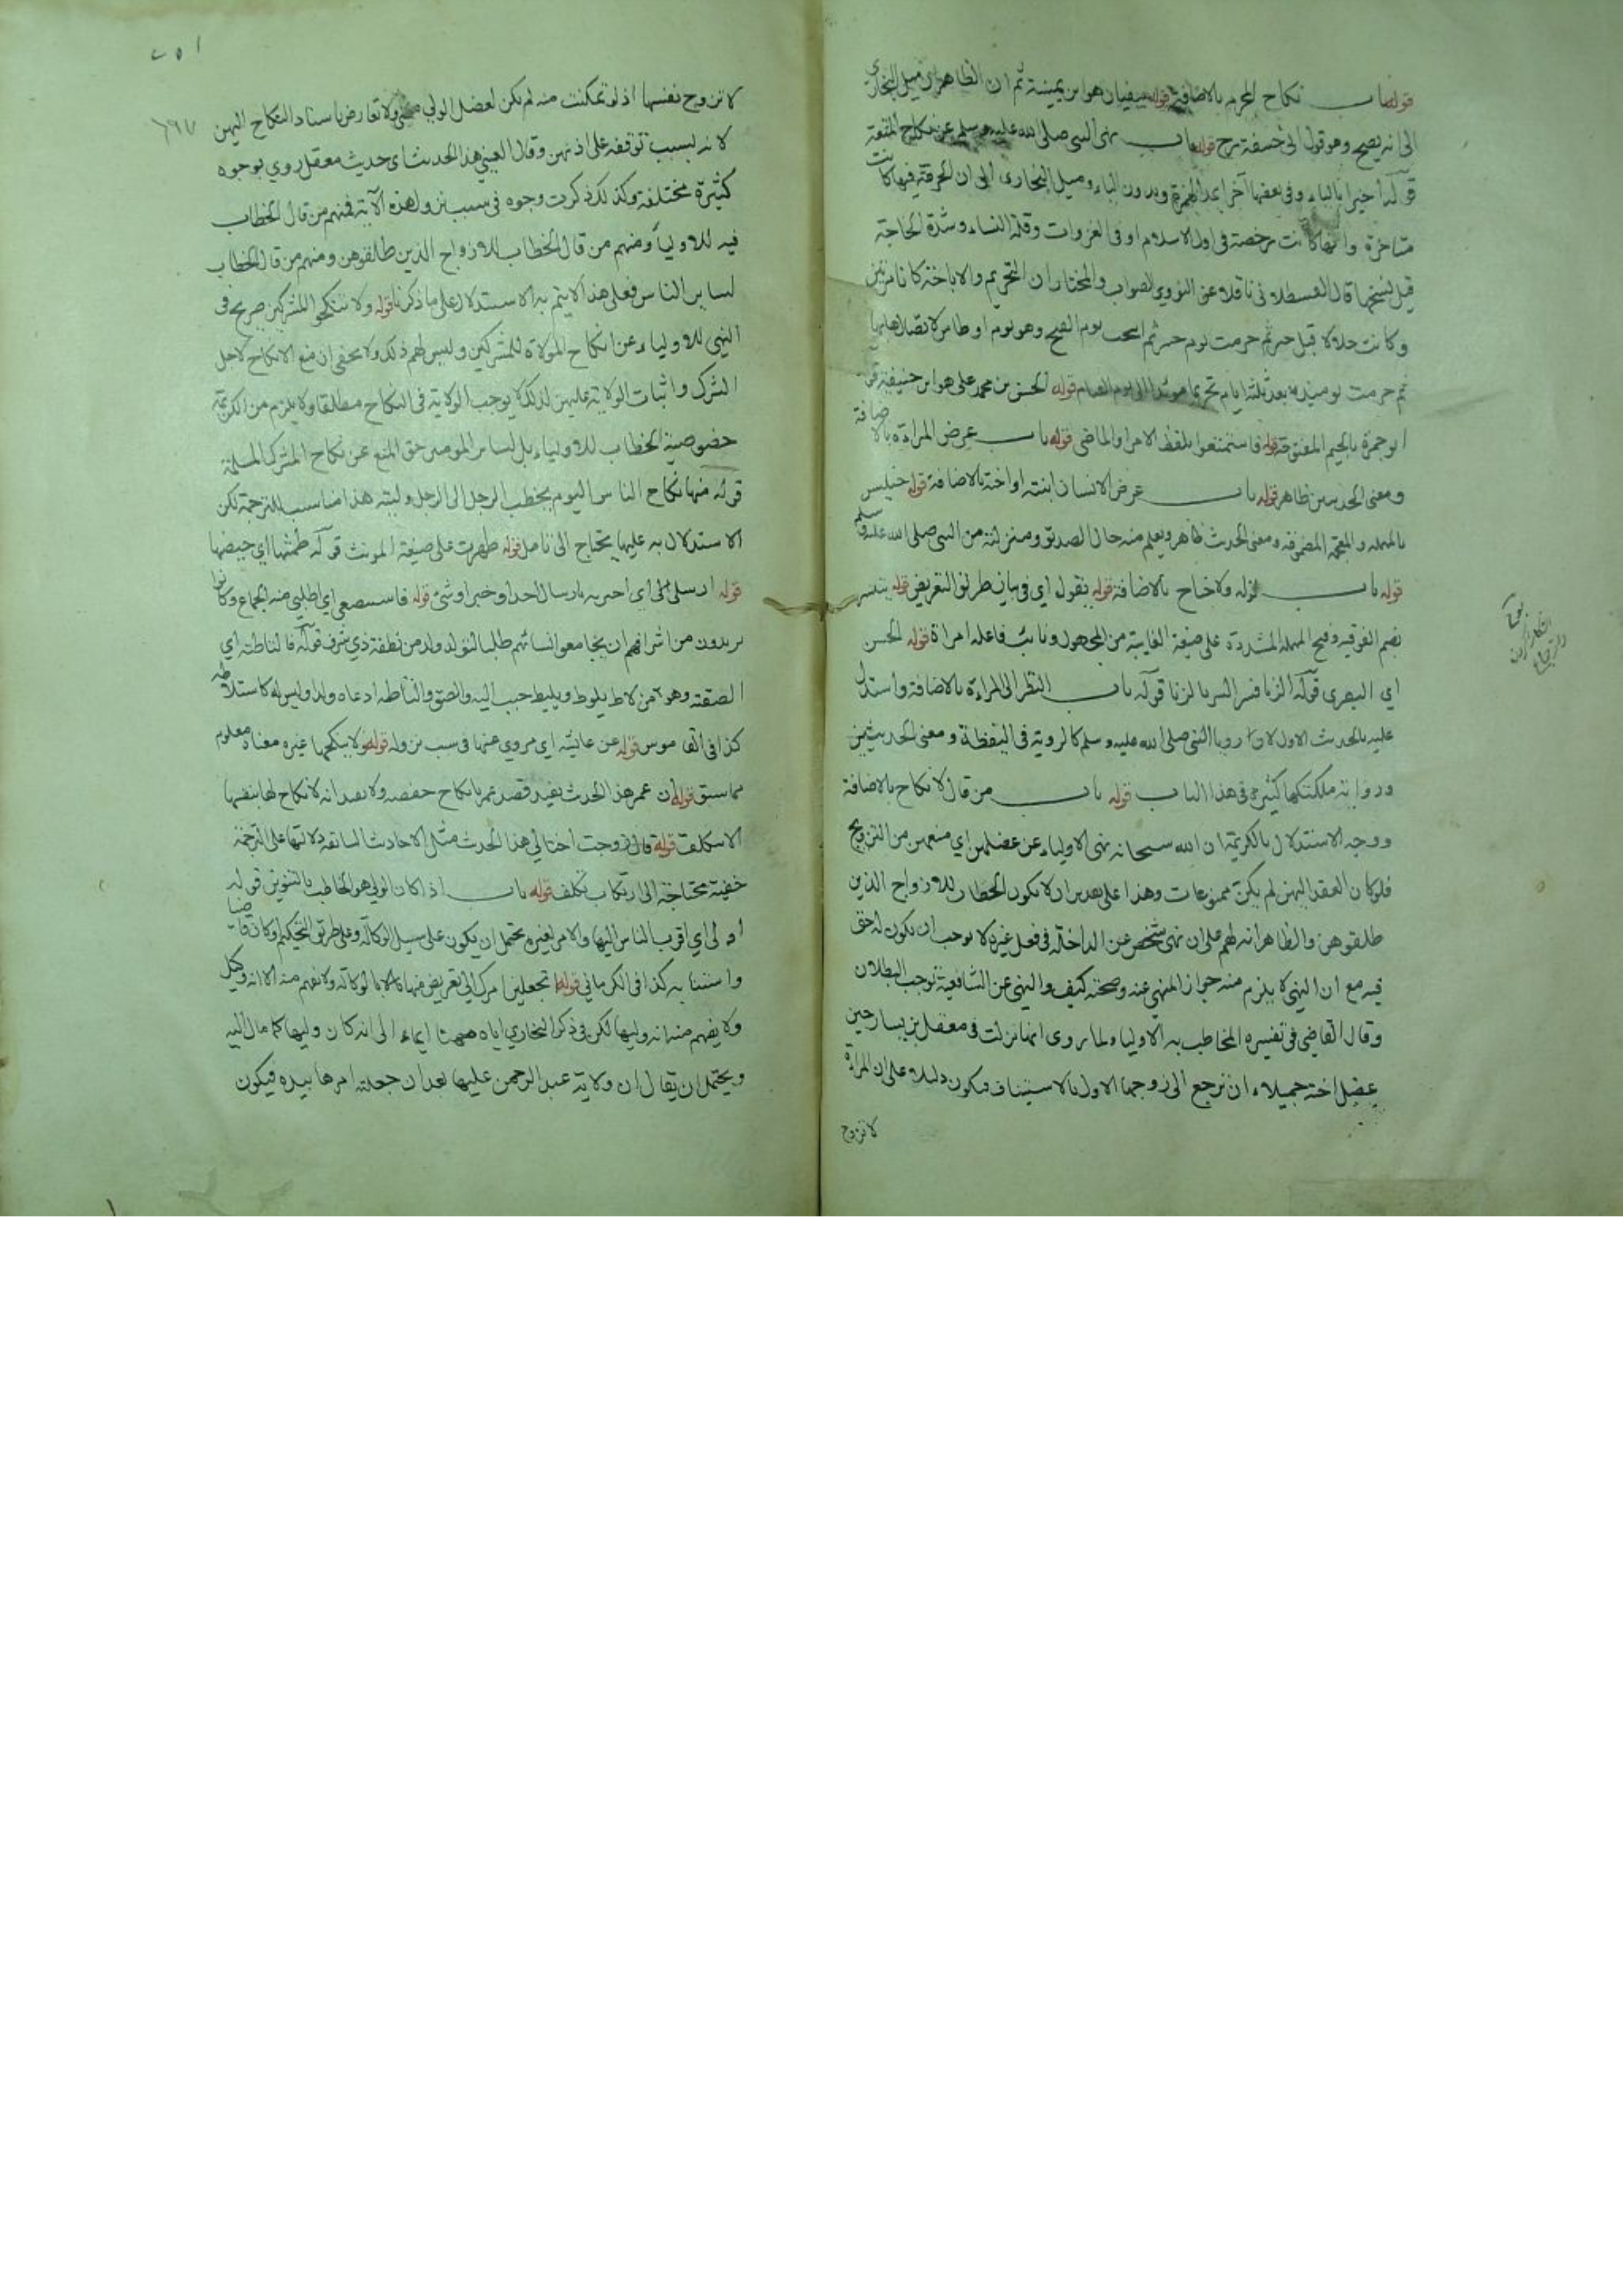 قوله باب نكاح المحرم بالاضافة قوله سفيان هو ابن عيينة ثم ان الظاهر ان ميل البخاري
الى انه يصح وهو قول ابي حنيفة رح قوله باب نهى النبي صلى الله عليه وسلم عن نكاح المتعة
قوله اخيرا بالياء وفي بعضها آخرا بمد الهمزة وبدون الياء وميل البخاري الى ان الحرمة فيها كانت
متاخرة وانها كانت رخصة في اول الاسلام او في الغزوات وقلة النساء وشدة الحاجة
قيل نسخها قال القسطلاني ناقلا عن النووي الصواب والمختار ان التحريم والاباحة كانا مرتين
وكانت حلالا قبل خيبر ثم حرمت يوم خيبر ثم ابيحت يوم الفتح وهو يوم اوطاس لاتصالهما
ثم حرمت يومئذ بعد ثلثة ايام تحريما مؤبدا الى يوم القيام قوله الحسن بن محمد علي هو ابن حنيفة قوله
ابو جمرة بالجيم المفتوحة قوله فاستمتعوا بلفظ الامر والماضي قوله باب عرض المراءة بالاضافة
ومعنى الحديثين ظاهر قوله باب عرض الانسان ابنته او اخته بالاضافة قوله خنيس
بالمهملة والمعجمة المضمومة ومعنى الحديث ظاهر ويعلم منه حال الصديق ومنزلته من النبي صلى الله عليه وسلم
قوله باب قوله ولا جناح بالاضافة قوله يقول اي في بيان طريق التعريض قوله يتيسر
بضم الفوقية وفتح المهملة المشددة على صيغة الغايبة من المجهول ونائب فاعله امراة قوله الحسن
اي البصري قوله الزنا فسر السر بالزنا قوله باب النظر الى المراءة بالاضافة واستدل
عليه بالحديث الاول لان رويا النبي صلى الله عليه وسلم كالروية في اليقظة ومعنى الحديث بين
ورواية ملكتكها كثيرة في هذا الباب قوله باب من قال لا نكاح بالاضافة
ووجه الاستدلال بالكريمة ان الله سبحانه نهى الاولياء عن عضلهن اي منعهن من التزويج
فلو كان العقد اليهن لم يكن ممنوعات وهذا على تقدير ان لا يكون الخطاب للازواج الذين
طلقوهن والظاهر انه لهم على ان نهي شخص عن المداخلة في فعل غيره لا يوجب ان يكون له حق
فيه مع ان النهي لا يلزم منه جواز المنهي عنه وصحته كيف والنهي عن الشافعية يوجب البطلان
وقال القاضي في تفسيره المخاطب به الاولياء لما روى انها نزلت في معقل بن يسار حين
عضل اخته جميلاء ان ترجع الى زوجها الاول بالاستيناف فيكون دليلا على ان المراة
لا تزوج
٢٥١
٦٩٧
لا تزوج نفسها اذ لو تمكنت منه لم يكن لعضل الولي معنى ولا تعارض باسناد النكاح اليهن
لانه بسبب توقفه على اذنهن وقال العيني هذا الحديث اي حديث معقل روي بوجوه
كثيرة مختلفة وكذلك ذكرت وجوه في سبب نزول هذه الآية فمنهم من قال الخطاب
فيه للاولياء ومنهم من قال الخطاب للازواج الذين طلقوهن ومنهم من قال الخطاب
لساير الناس فعلى هذا لا يتم به الاستدلال على ما ذكرنا قوله ولا تنكحوا المشركين صريح في
النهي للاولياء عن انكاح المولاة للمشركين وليس لهم ذلك ولا يخفى ان منع الانكاح لاجل
الشرك واثبات الولاية عليهن لذلك لا يوجب الولاية في النكاح مطلقا ولا يلزم من الكريمة
خصوصية الخطاب للاولياء بل لساير المومنين حق المنع عن نكاح المشرك المسلمة
قوله منها نكاح الناس اليوم يخطب الرجل الى الرجل وليته هذا مناسب للترجمة لكن
الاستدلال به عليها يحتاج الى تامل قوله طهرت على صيغة المونث قوله طمثها اي حيضها
قوله ارسلي الى اي اخبريه بارسال احد او خبر او شيئ قوله فاستبضعي اي اطلبي منه الجماع وكانوا
يريدون من اشرافهم ان يجامعوا نسائهم طلبا لتولد ولد من نطفة ذي شرف قوله فالتاطته اي
الصقته وهو من لاط يلوط ويليط حبب اليه والصق والتاطه ادعاه ولدا وليس له كاستلاطه
كذا في القاموس قوله عن عائشة اي مروي عنها في سبب نزوله قوله ولا ينكحها غيره معناه معلوم
مما سبق قوله ان عمر هذا الحديث يفيد قصد عمر بانكاح حفصه ولا يفيد انه لا نكاح لها بنفسها
الا بتكلف قوله قال زوجت اختا لي هذا الحديث مثل الاحاديث السابقة دلالتها على الترجمة
خفية محتاجة الى ارتكاب تكلف قوله باب اذا كان الولي هو الخاطب بالتنوين قوله
اولى اي اقرب الناس اليها والامر لغيره يحتمل ان يكون على سبيل الوكالة وعلى طريق التحكيم وكان قاضيا
واستنابه كذا في الكرماني قوله اتجعلين امرك الي تعريض منها بالوكالة ولا يفهم منه الا انه وكيل
ولا يفهم منه انه وليها لكن في ذكر البخاري اياه ههنا ايماء الى انه كان وليها كما مال اليه
ويحتمل ان يقال ان ولاية عبد الرحمن عليها بعد ان جعلته امرها بيده فيكون